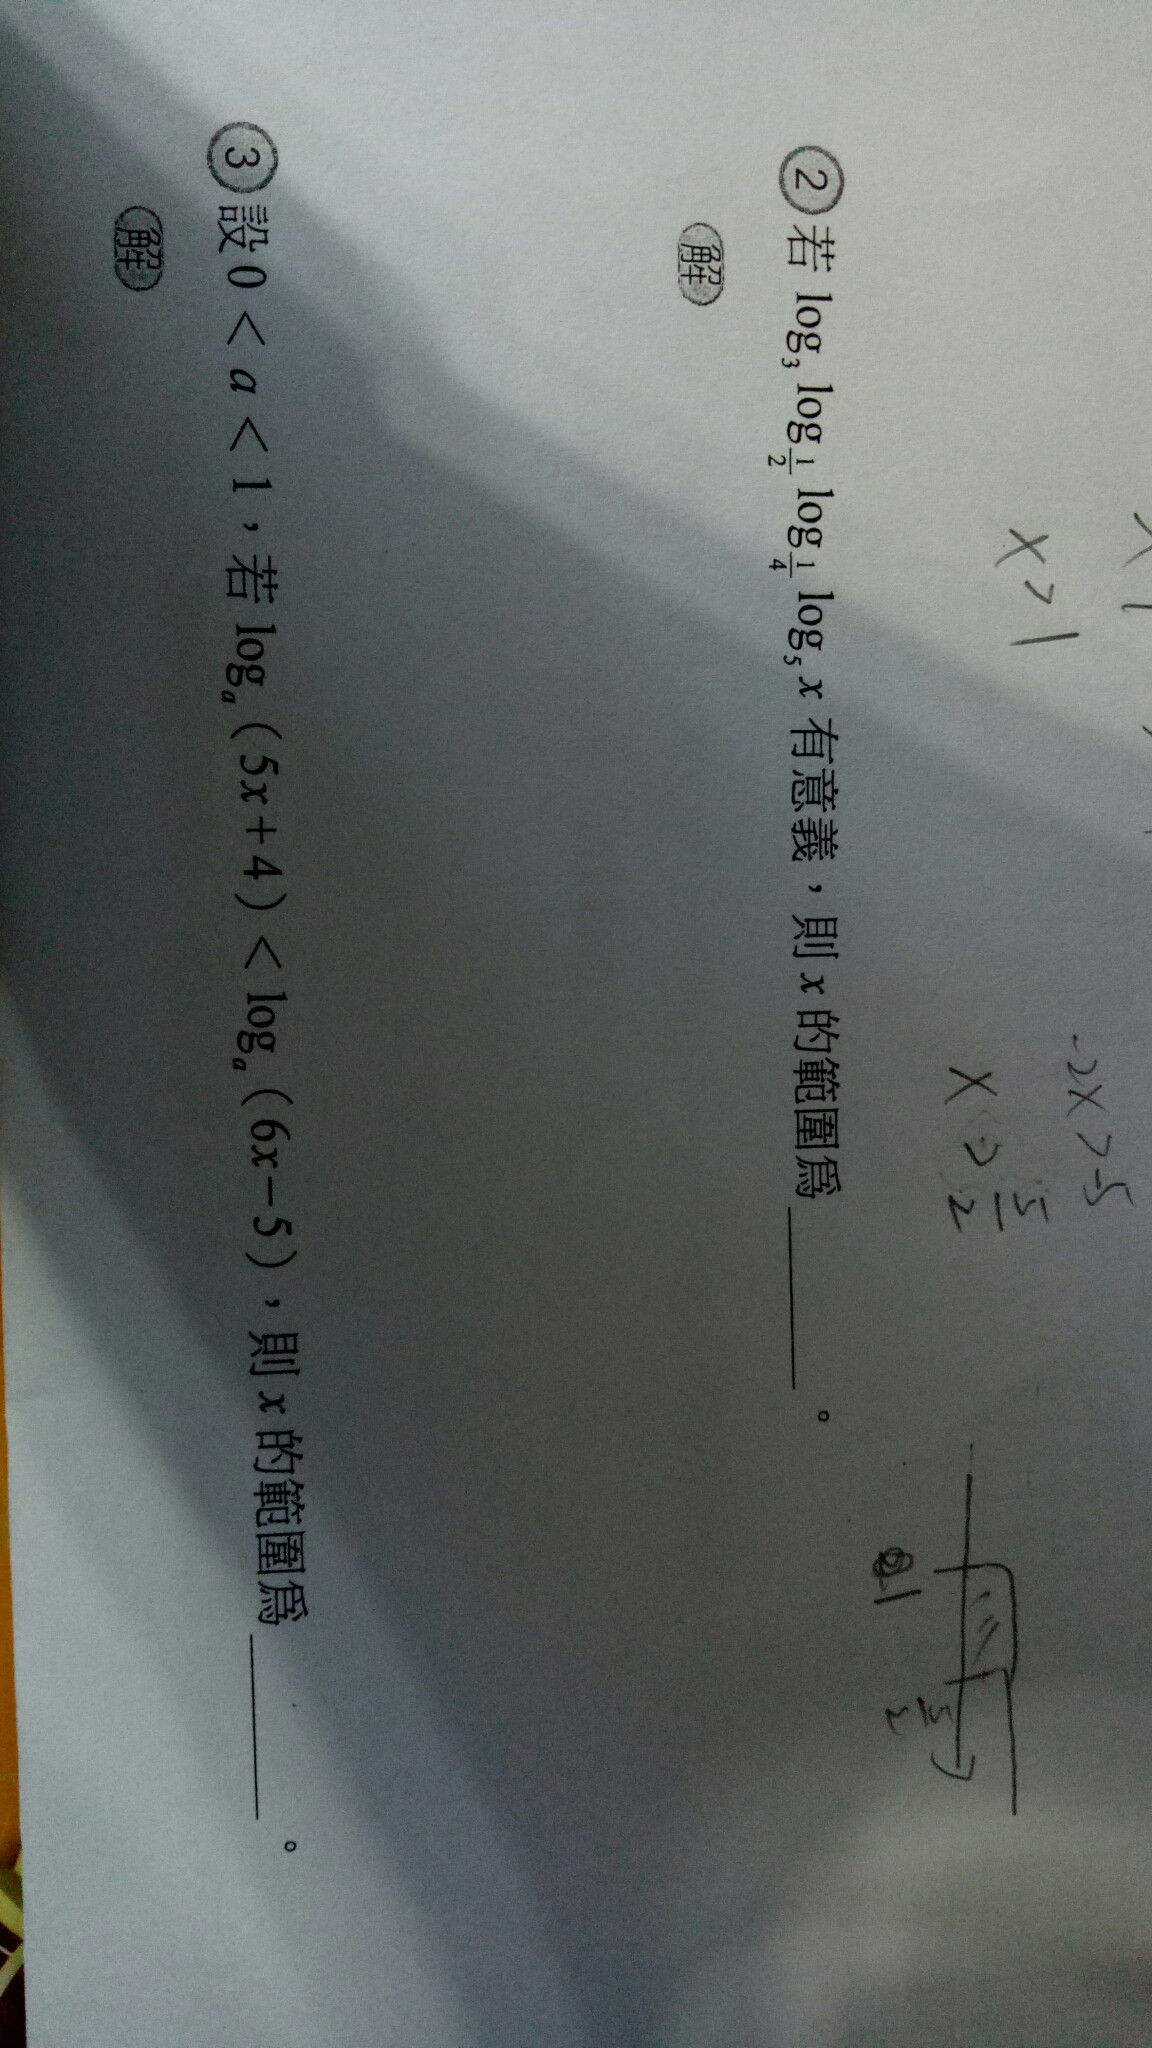 x > 1
-2x > -5
x > 5/2
1
5/2
② 若 log₃ log_{1/2} log_{1/4} log₅ x 有意義，則 x 的範圍為 ______ 。
解
③ 設 0 < a < 1，若 logₐ (5x+4) < logₐ (6x−5)，則 x 的範圍為 ______ 。
解